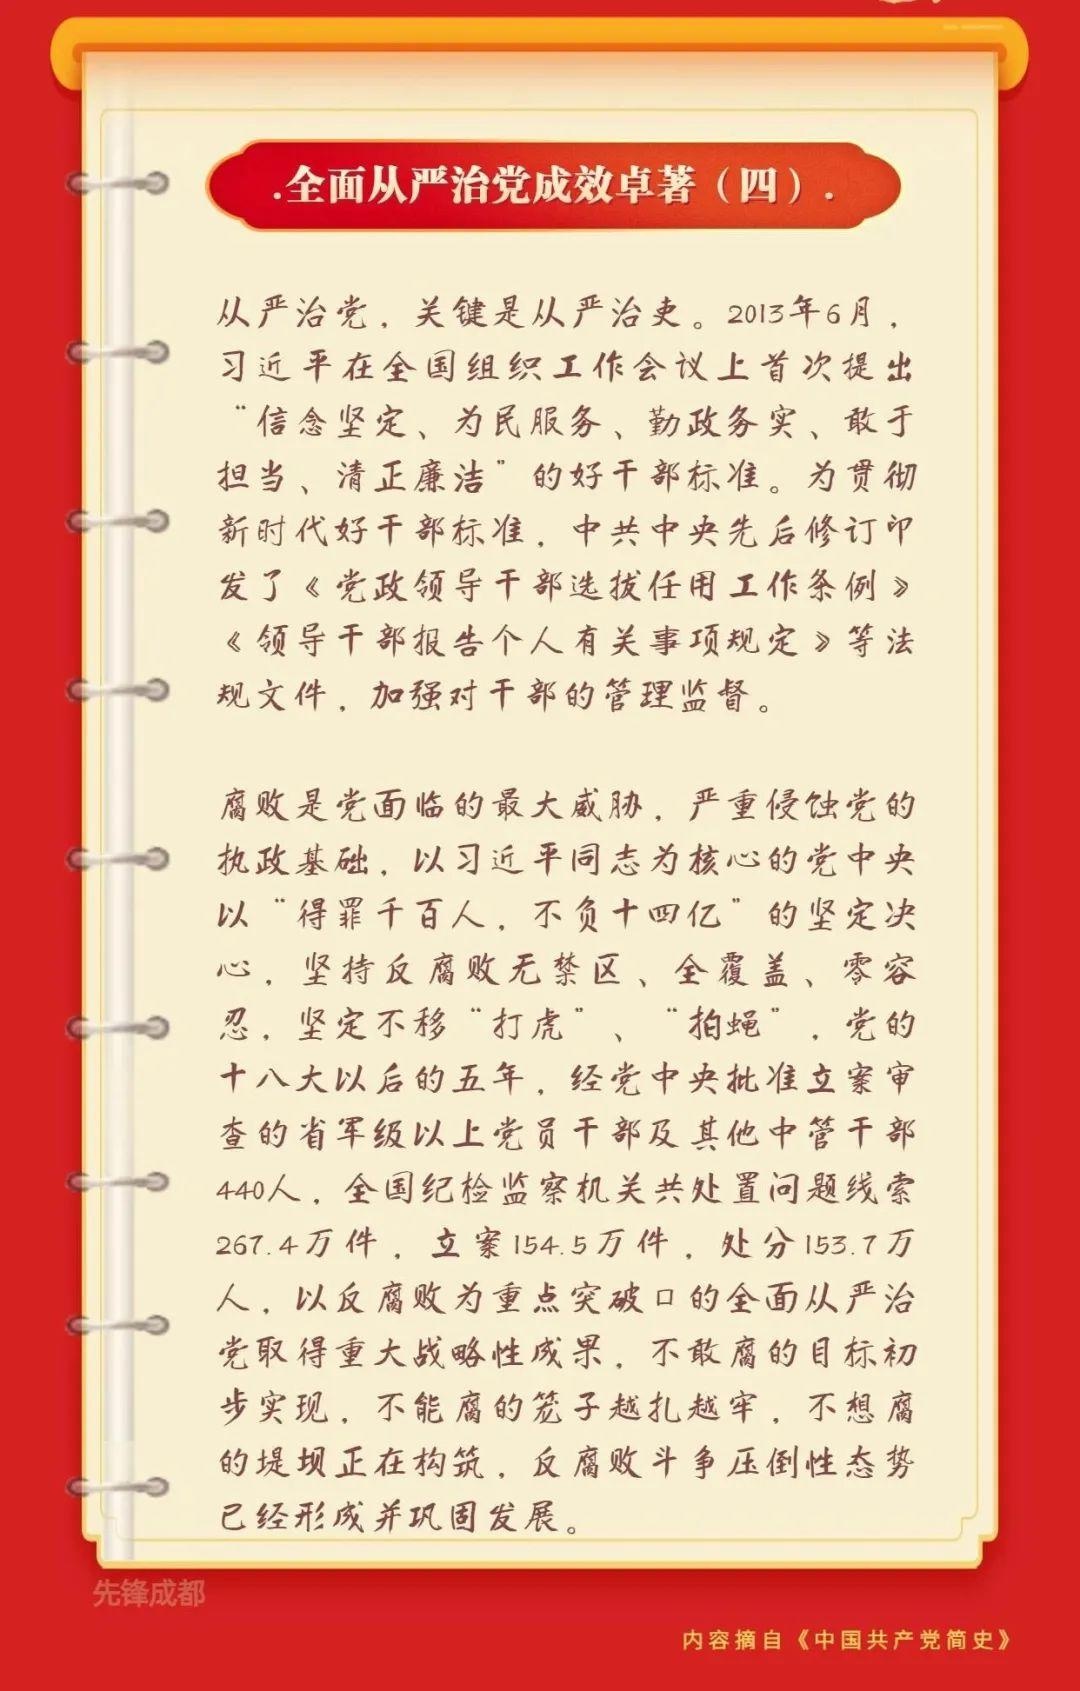 .全面从严治党成效卓著（四）.
从严治党，关键是从严治吏。2013年6月，
习近平在全国组织工作会议上首次提出
“信念坚定、为民服务、勤政务实、敢于
担当、清正廉洁”的好干部标准。为贯彻
新时代好干部标准，中共中央先后修订印
发了《党政领导干部选拔任用工作条例》
《领导干部报告个人有关事项规定》等法
规文件，加强对干部的管理监督。
腐败是党面临的最大威胁，严重侵蚀党的
执政基础，以习近平同志为核心的党中央
以“得罪千百人，不负十四亿”的坚定决
心，坚持反腐败无禁区、全覆盖、零容
忍，坚定不移“打虎”、“拍蝇”，党的
十八大以后的五年，经党中央批准立案审
查的省军级以上党员干部及其他中管干部
440人，全国纪检监察机关共处置问题线索
267.4万件，立案154.5万件，处分153.7万
人，以反腐败为重点突破口的全面从严治
党取得重大战略性成果，不敢腐的目标初
步实现，不能腐的笼子越扎越牢，不想腐
的堤坝正在构筑，反腐败斗争压倒性态势
已经形成并巩固发展。
先锋成都
内容摘自《中国共产党简史》